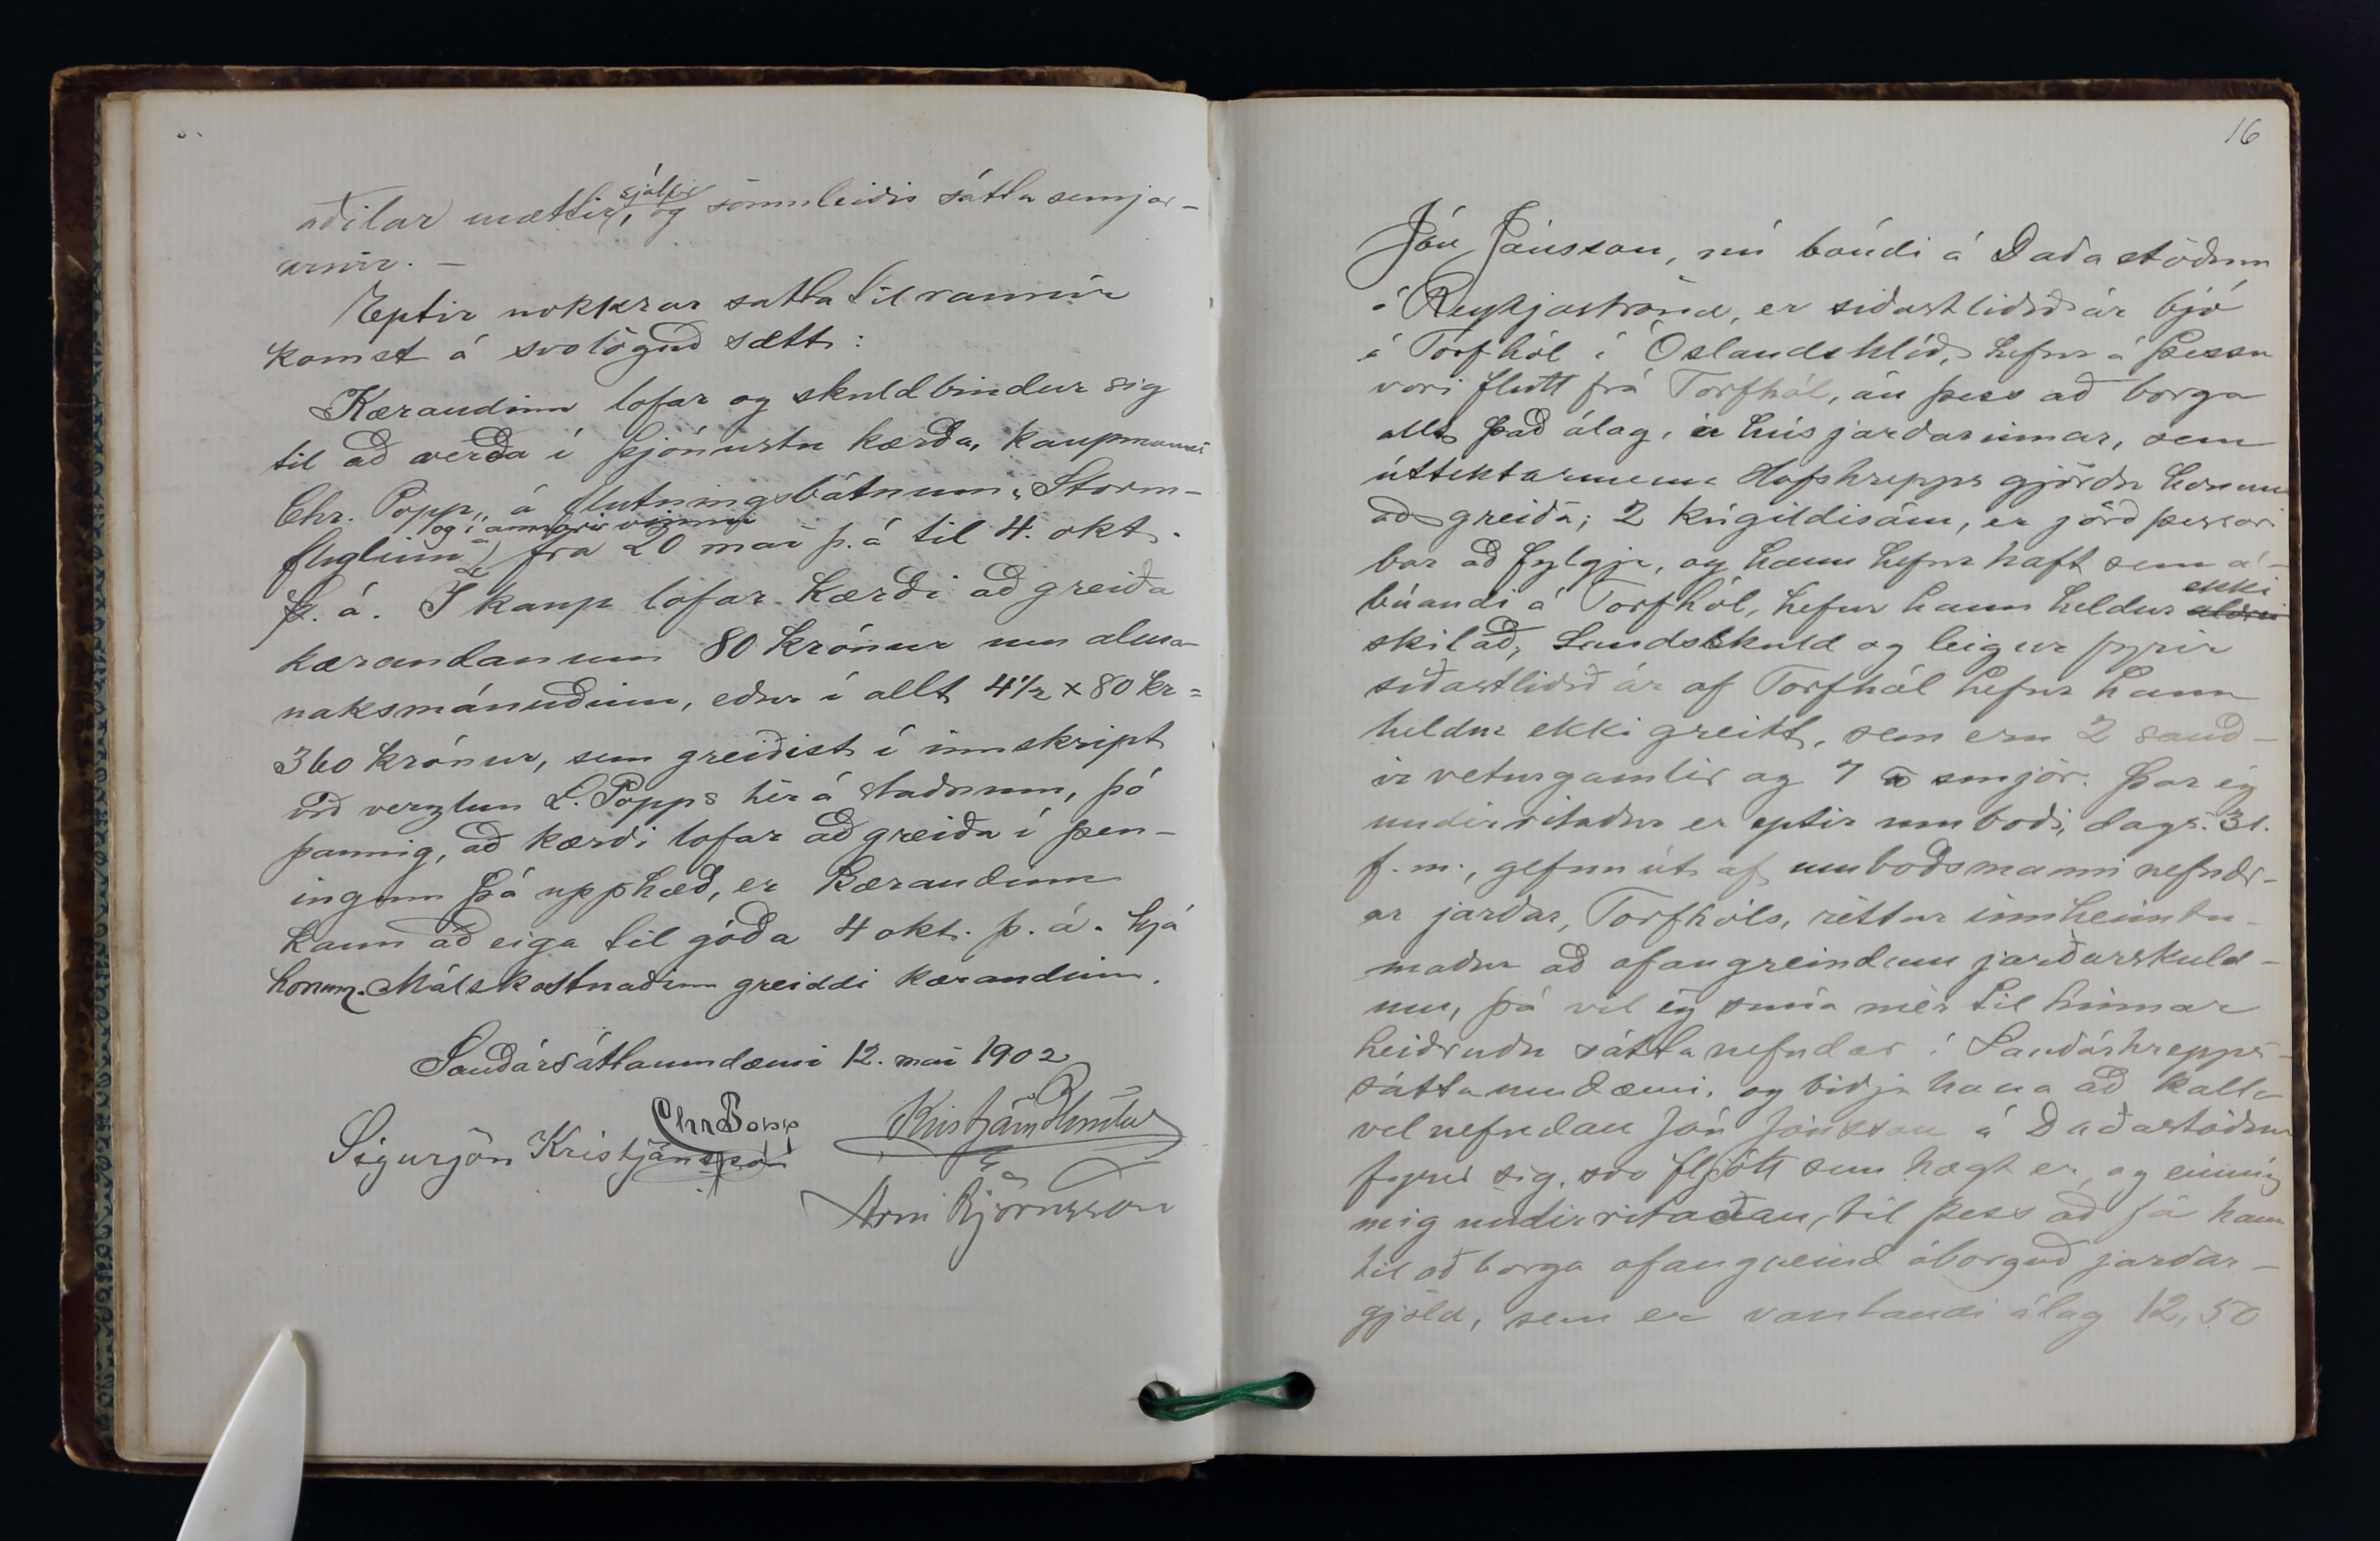 aðilar mættir, sjálfir og sömuleiðis sáttasemjar-
arnir. —
Eptir nokkrar sáttatilraunir
komst á svolöguð sætt:
Kærandinn lofar og skuldbindur sig
til að verða í þjónustu kærða, kaupmanns
Chr. Popp, á flutningsbátnum "Storm-
fuglinn" og í annari vinnu frá 20 maí þ.á til 4. okt.
þ. á. Í kaup lofar kærði að greiða
kærandanum 80 krónur um alma-
naksmánuðinn, eður í allt 4½ x 80 kr =
360 krónur, sem greiðist í innskript
við verzlun L. Popps hér á staðnum, þó
þannig, að kærði lofar að greiða í pen-
ingum þá upphæð, er kærandinn
kann að eiga til góða 4 okt. þ. á. hjá
honum. Málskostnaðinn greiddi kærandinn.
Sauðársáttaumdæmi 12. maí 1902
Chr Popp
Sigurjón Kristjánsson
Kristján Blöndal
Árni Björnsson
16
Jón Jónsson, nú bóndi á Daðastöðum
á Reykjaströnd, er síðastliðið ár bjó
á Torfhól í Óslandshlíð, hefur á þessu
vori flutt frá Torfhól, án þess að borga
allt það álag, á hús jarðarinnar, sem
úttektarmenn Hofshrepps gjörðu honum
að greiða; 2 kúgildisám, er jörð þessari
bar að fylgja, og hann hefur haft sem á-
búandi á Torfhól, hefur hann heldur ekki aldrei
skilað, Landsskuld og leigur fyrir
síðastliðið ár af Torfhól hefur hann
heldur ekki greitt, sem eru 2 sauð-
ir veturgamlir og 7 smjör. Þar ég
undirritaður er eptir umboði, dags. 31.
f. m., gefnu út af umboðsmanni nefndr-
ar jarðar, Torfhóls, réttur innheimtu-
maður að ofangreindum jarðarskuld-
um, þá vil ég snúa mér til hinnar
heiðruðu sáttanefndar í Sauðárhrepps-
sáttaumdæmi, og biðja hana að kalla
vel nefndan Jón Jónsson á Daðastöðum
fyrir sig, svo fljótt sem hægt er, og einnig
mig undirritaðan, til þess að fá hann
til að borga ofangreind óborguð jarðar-
gjöld, sem er vantandi álag 12,50